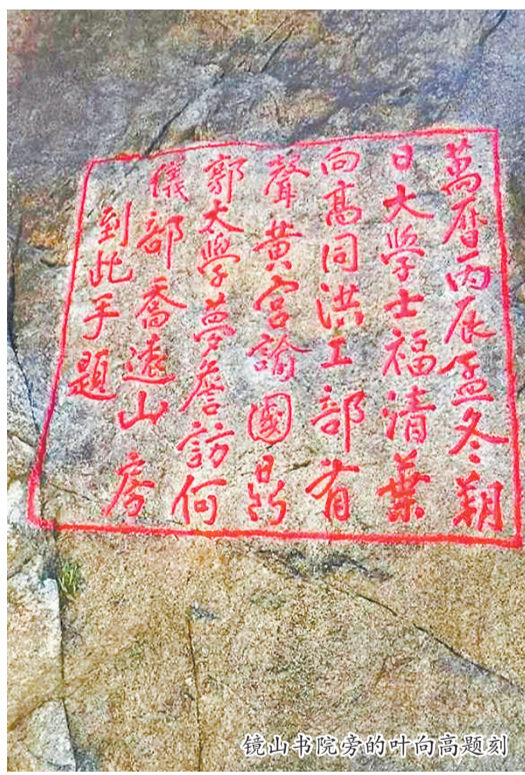 萬曆丙辰孟冬朔
日大學士福清葉
向高同洪工部有
聲黃宮諭國鼎
郭太學夢詹訪何
儀部喬遠山房
到此手題
镜山书院旁的叶向高题刻